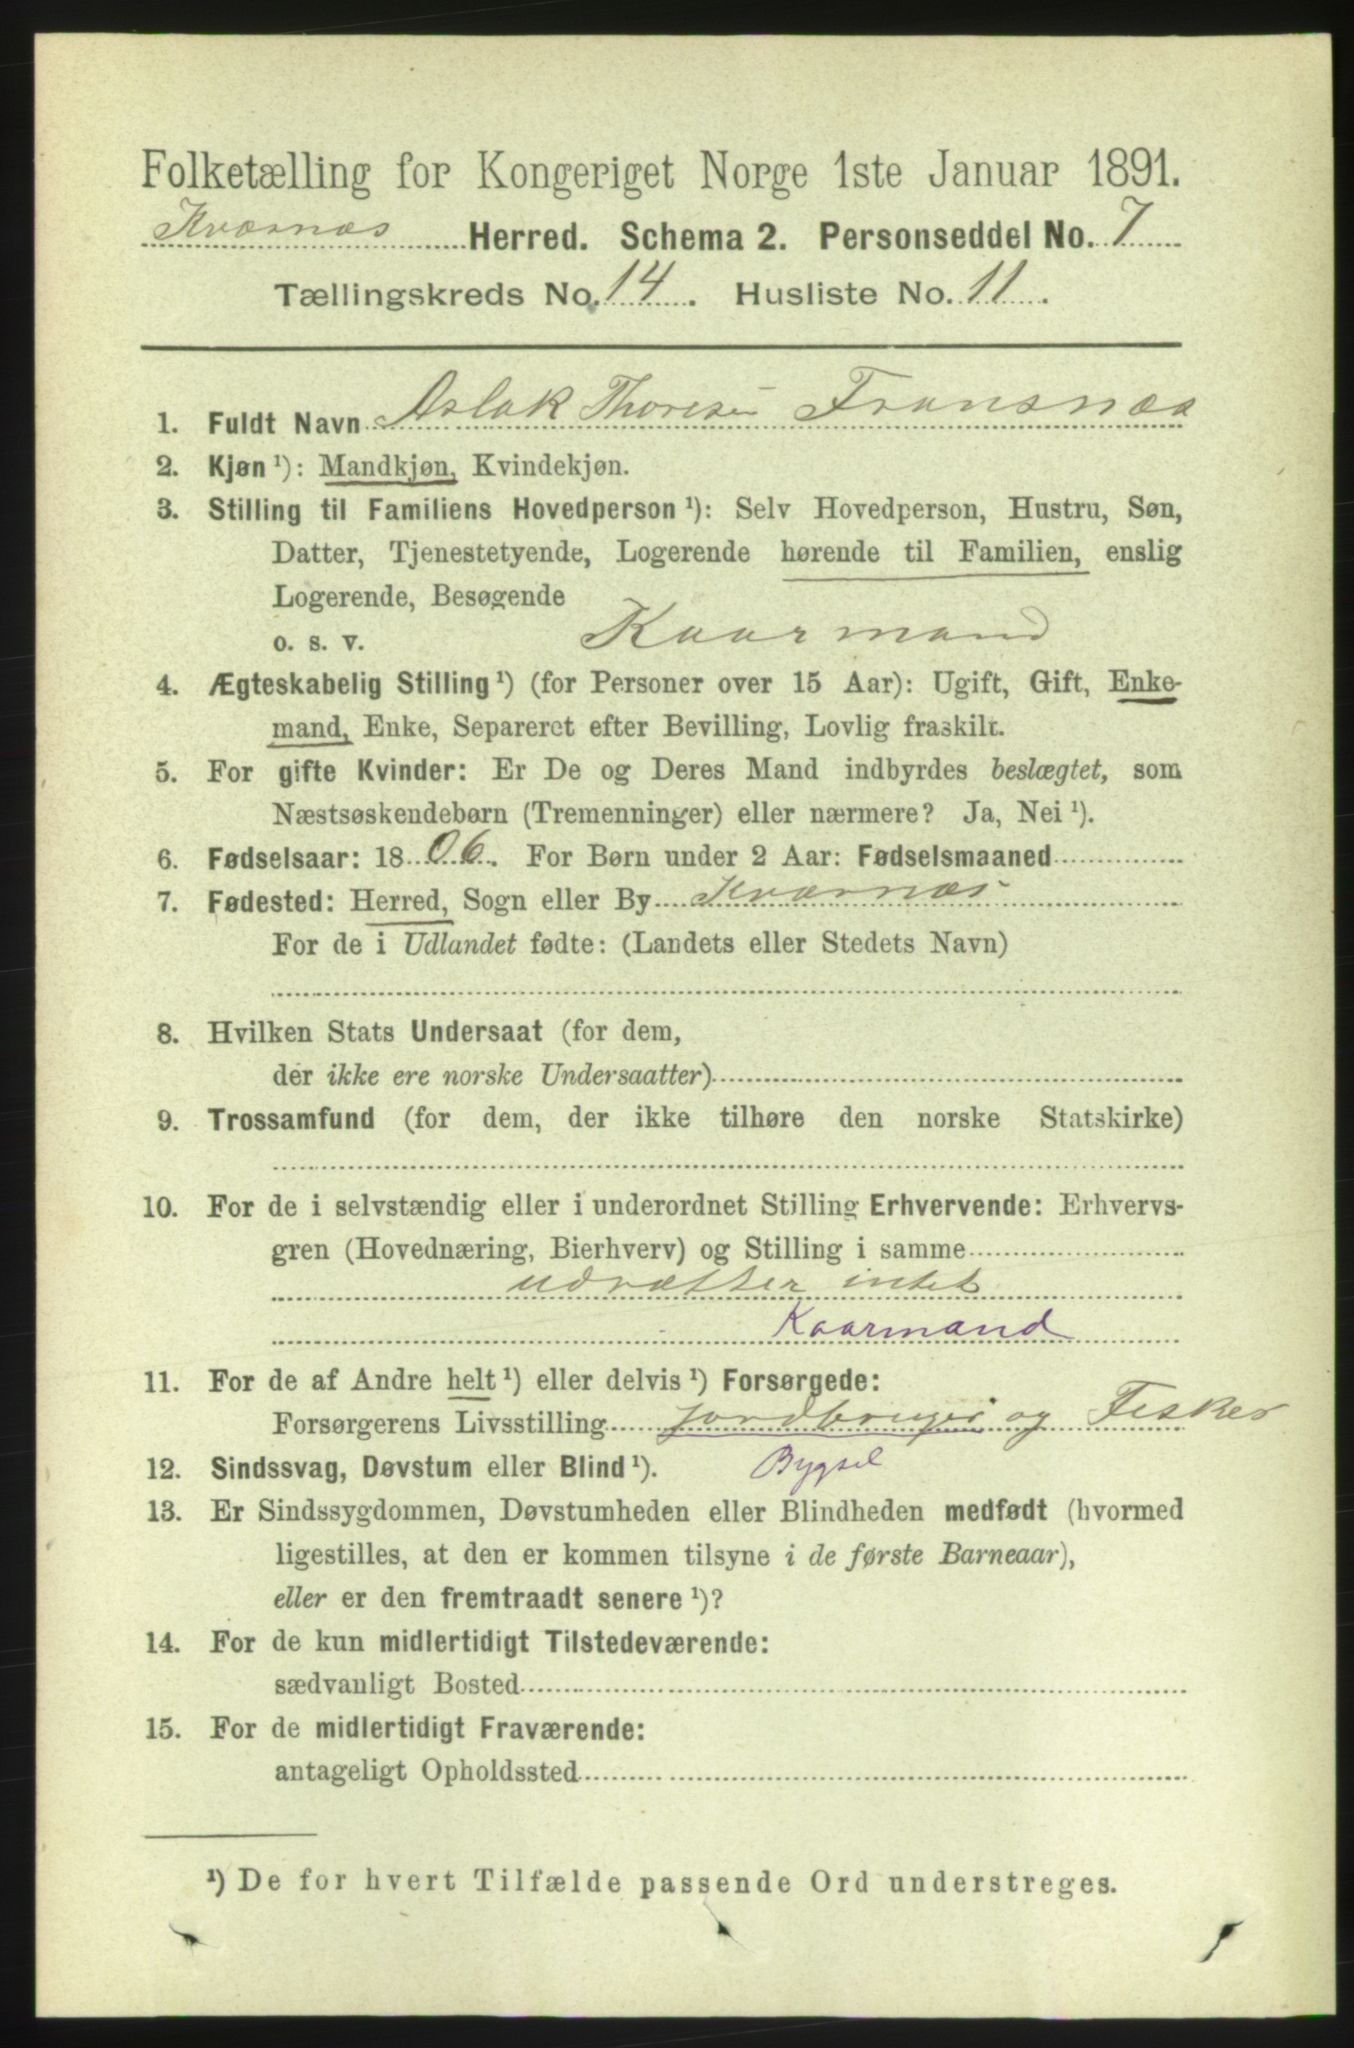 Folketælling for Kongeriget Norge 1ste Januar 1891.
Kværnæs Herred. Schema 2. Personseddel No. 7
Tællingskreds No. 14. Husliste No. 11.
1. Fuldt Navn Aslak Thoresen Fransnæs
2. Kjøn ¹): Mandkjøn, Kvindekjøn.
3. Stilling til Familiens Hovedperson ¹): Selv Hovedperson, Hustru, Søn,
Datter, Tjenestetyende, Logerende hørende til Familien, enslig
Logerende, Besøgende
o. s. v. Kaarmand
4. Ægteskabelig Stilling ¹) (for Personer over 15 Aar): Ugift, Gift, Enke-
mand, Enke, Separeret efter Bevilling, Lovlig fraskilt.
5. For gifte Kvinder: Er De og Deres Mand indbyrdes beslægtet, som
Næstsøskendebørn (Tremenninger) eller nærmere? Ja, Nei ¹).
6. Fødselsaar: 1806. For Børn under 2 Aar: Fødselsmaaned
7. Fødested: Herred, Sogn eller By Kværnæs
For de i Udlandet fødte: (Landets eller Stedets Navn)
8. Hvilken Stats Undersaat (for dem,
der ikke ere norske Undersaatter)
9. Trossamfund (for dem, der ikke tilhøre den norske Statskirke)
10. For de i selvstændig eller i underordnet Stilling Erhvervende: Erhvervs-
gren (Hovednæring, Bierhverv) og Stilling i samme
udrætter intet
Kaarmand
11. For de af Andre helt ¹) eller delvis ¹) Forsørgede:
Forsørgerens Livsstilling jordbruger og Fisker
12. Sindssvag, Døvstum eller Blind ¹). Bygsel
13. Er Sindssygdommen, Døvstumheden eller Blindheden medfødt (hvormed
ligestilles, at den er kommen tilsyne i de første Barneaar),
eller er den fremtraadt senere ¹)?
14. For de kun midlertidigt Tilstedeværende:
sædvanligt Bosted
15. For de midlertidigt Fraværende:
antageligt Opholdssted
¹) De for hvert Tilfælde passende Ord understreges.